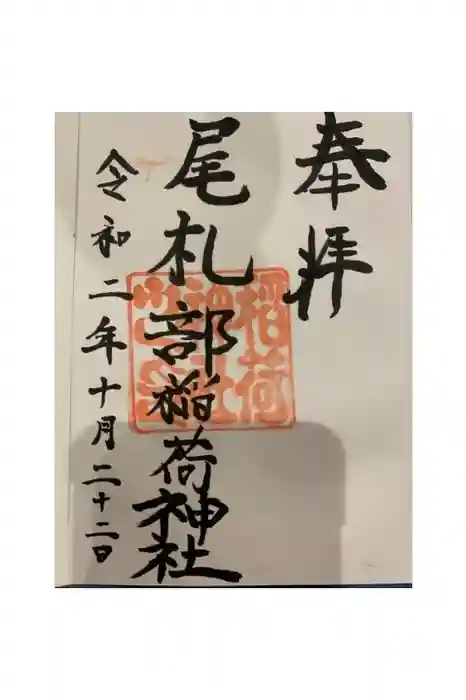 奉拝
尾札部稲荷神社
稲荷
神社
令和二年十月二十二日